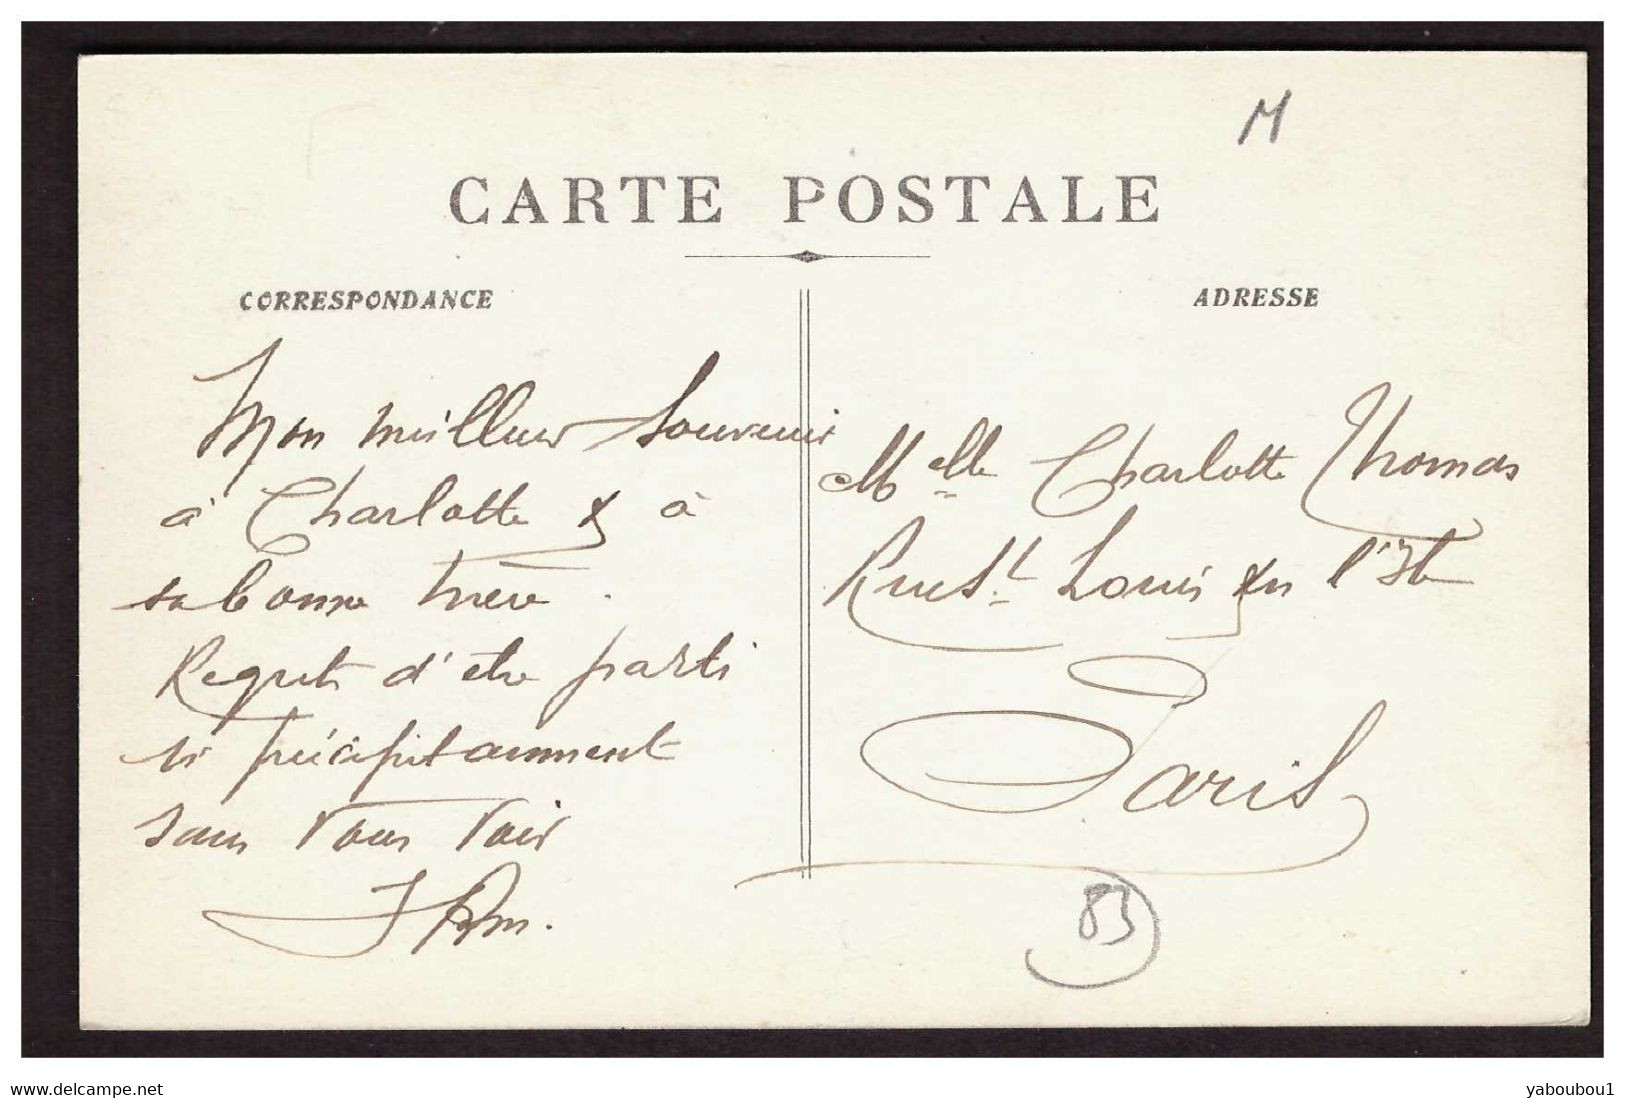 M
CARTE POSTALE
CORRESPONDANCE
ADRESSE
Mon meilleur Souvenir
à Charlotte & à
sa bonne mère.
Regrets d'être parti
si précipitamment
sans vous voir
Melle Charlotte Thomas
Rue St. Louis en l'Ile
Paris
83
www.delcampe.net
yaboubou1